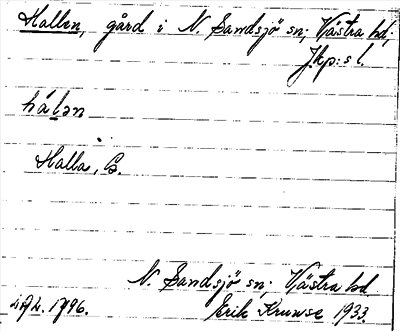 Hallen, gård i N. Sandsjö sn; Västra hd;
Jkp:s l.
hálən
Halla, B.
N. Sandsjö sn; Västra hd.
Erik Kruuse 1933.